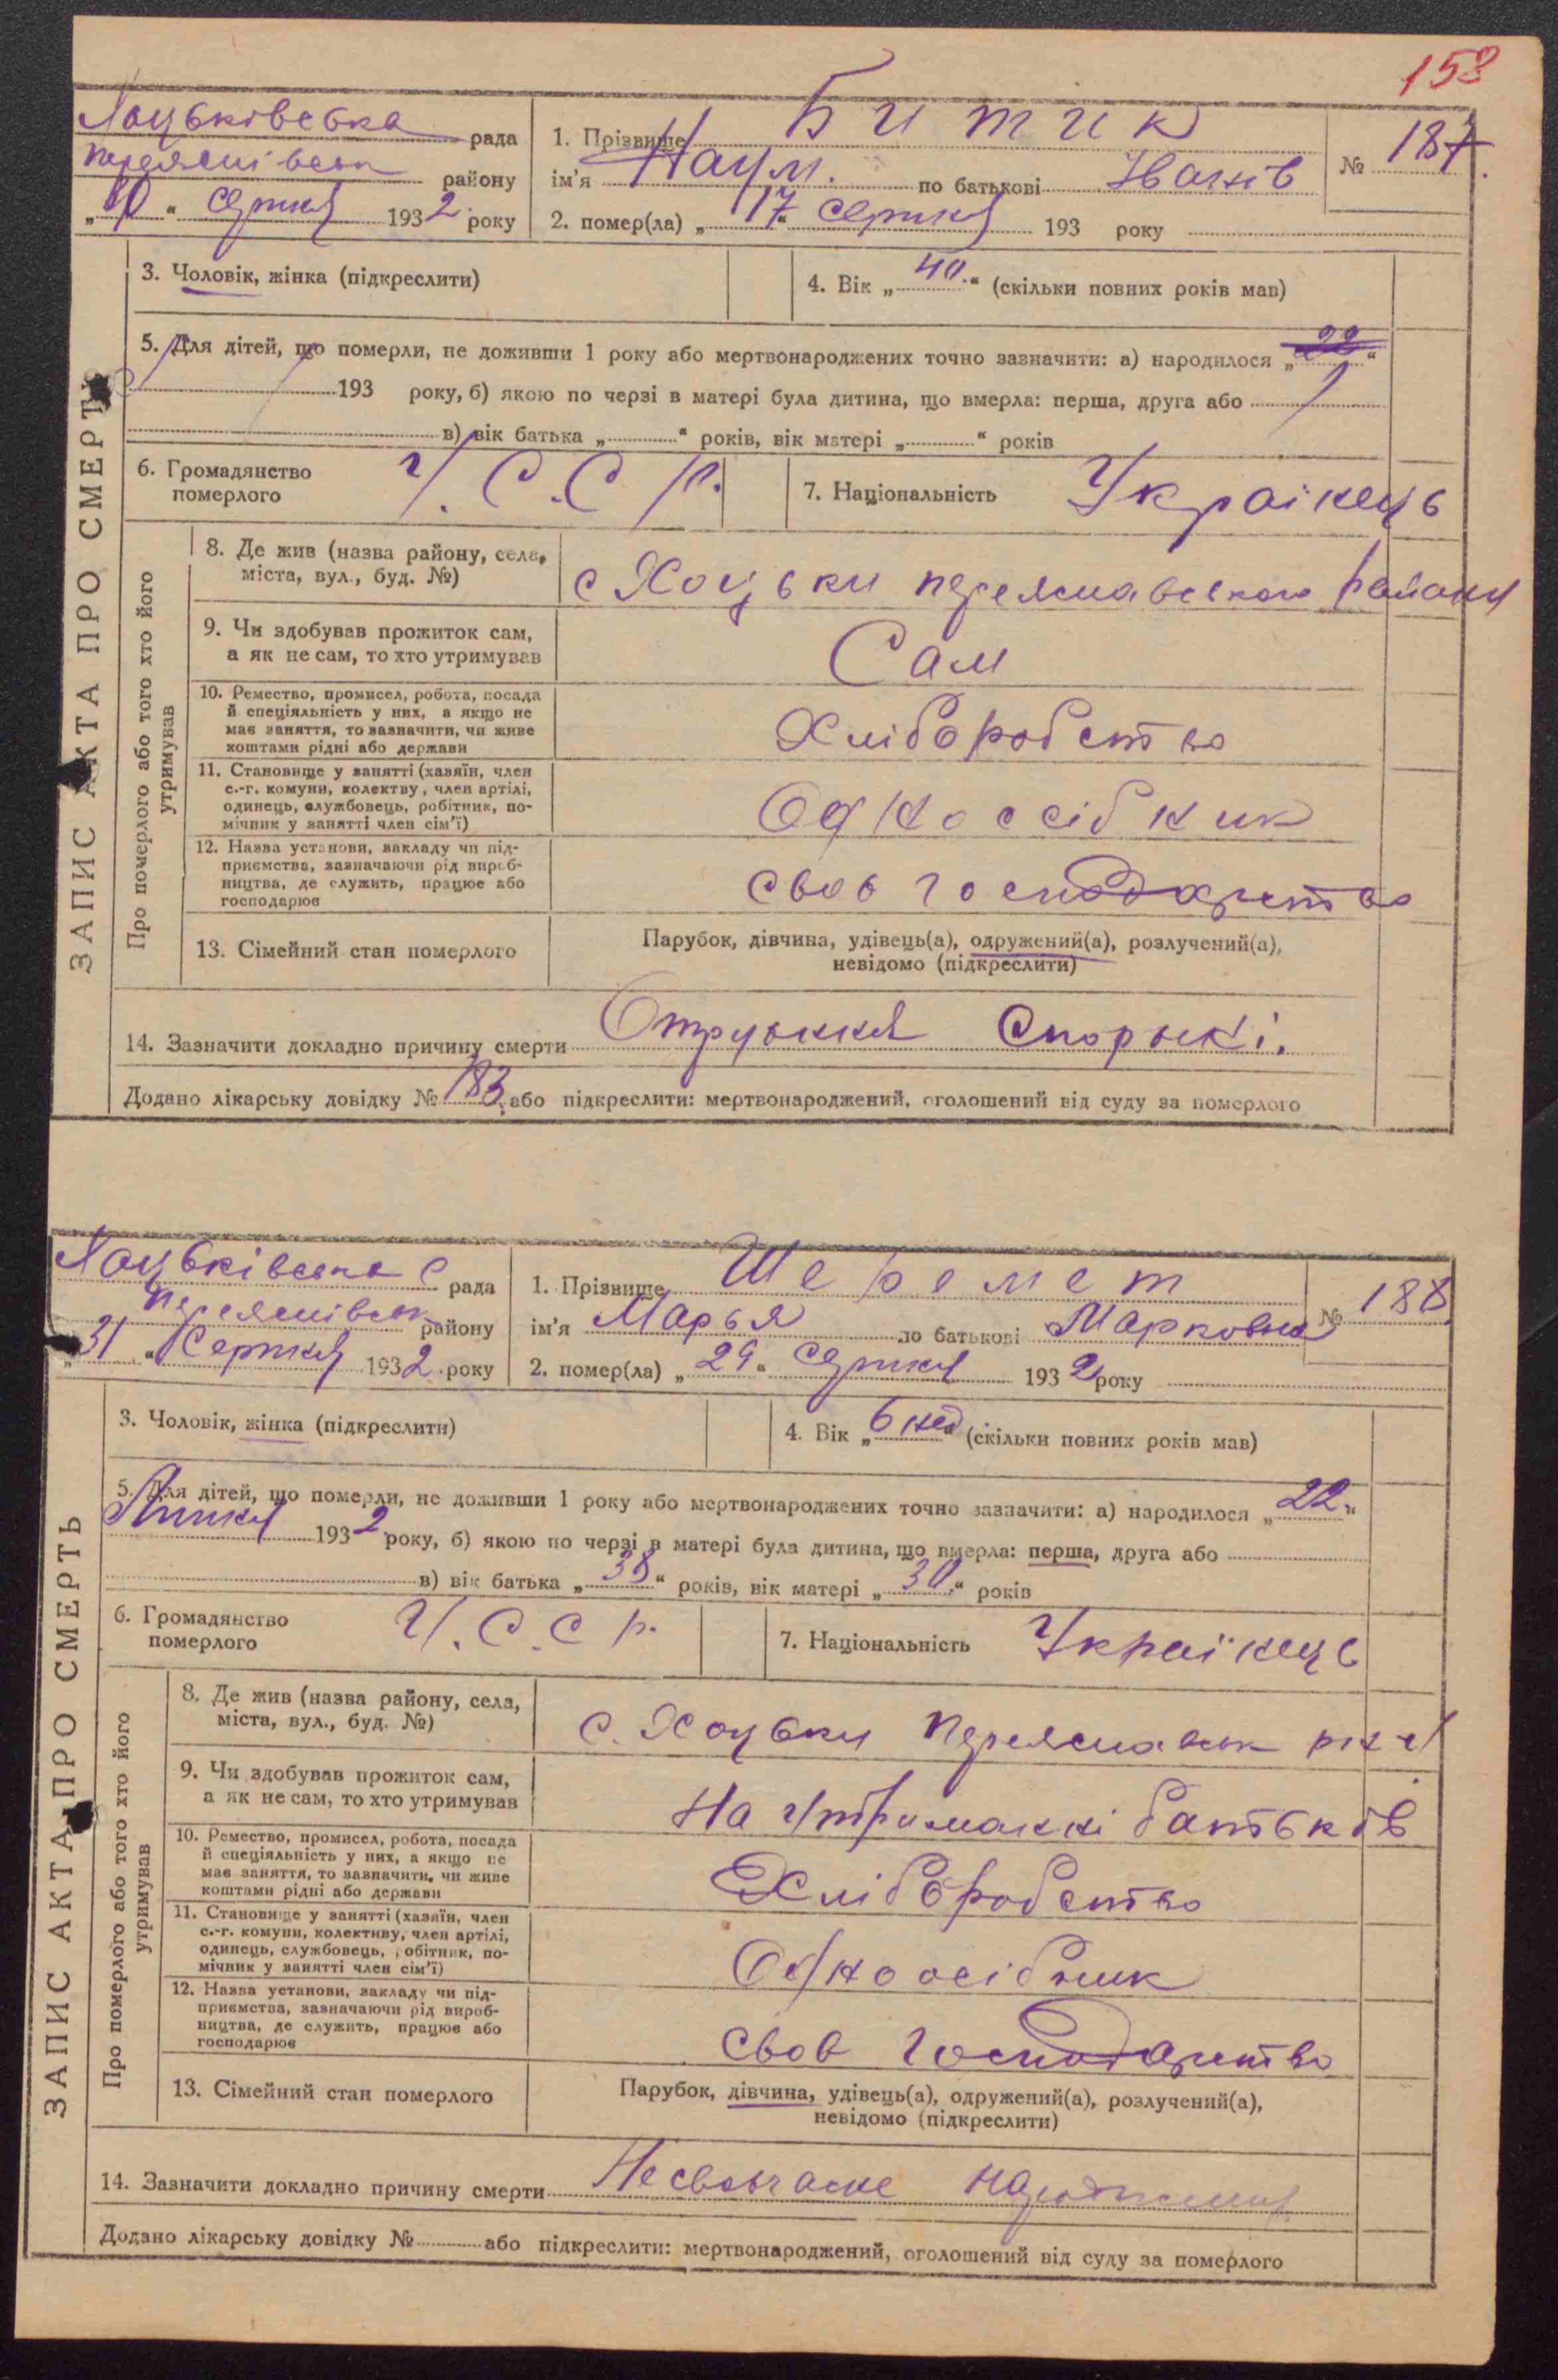 158
Хоцьківська рада
району
" " серпня 1932 року
1. Прізвище Битик
ім'я Наум. по батькові Іванів
№ 187.
2. помер(ла) „17" серпня 193 року
ЗАПИС АКТА ПРО СМЕРТЬ
3. Чоловік, жінка (підкреслити)
4. Вік „40." (скільки повних років мав)
5. Для дітей, що померли, не доживши 1 року або мертвонароджених точно зазначити: а) народилося „22"
193 року, б) якою по черзі в матері була дитина, що вмерла: перша, друга або
в) вік батька „ " років, вік матері „ " років
6. Громадянство
померлого
У.С.С.Р.
7. Національність Українець
Про померлого або того хто його
утримував
8. Де жив (назва району, села,
міста, вул., буд. №)
с Хоцьки переяславського району
9. Чи здобував прожиток сам,
а як не сам, то хто утримував
Сам
10. Ремество, промисел, робота, посада
й спеціяльність у них, а якщо не
має заняття, то зазначити, чи живе
коштами рідні або держави
Хліборобство
11. Становище у занятті (хазяїн, член
с.-г. комуни, колектву, член артілі,
одинець, службовець, робітник, по-
мічник у занятті член сім'ї)
Одноосібник
12. Назва установи, закладу чи під-
приємства, зазначаючи рід вироб-
ництва, де служить, працює або
господарює
своє господарство
13. Сімейний стан померлого
Парубок, дівчина, удівець(а), одружений(а), розлучений(а),
невідомо (підкреслити)
14. Зазначити докладно причину смерти Отруєння Спорыні.
Додано лікарську довідку № 183. або підкреслити: мертвонароджений, оголошений від суду за померлого
Хоцьківська с рада
району
„31" Серпня 1932 року
1. Прізвище Шеремет
ім'я Марья по батькові Марковна
№ 188
2. помер(ла) „29" серпня 1932 року
ЗАПИС АКТА ПРО СМЕРТЬ
3. Чоловік, жінка (підкреслити)
4. Вік „6 нед" (скільки повних років мав)
5. Для дітей, що померли, не доживши 1 року або мертвонароджених точно зазначити: а) народилося „22"
Липня 1932 року, б) якою по черзі в матері була дитина, що вмерла: перша, друга або
в) вік батька „38" років, вік матері „30." років
6. Громадянство
померлого
У.С.С.Р.
7. Національність Українець
Про померлого або того хто його
утримував
8. Де жив (назва району, села,
міста, вул., буд. №)
с. Хоцьки Переяславськ р-н
9. Чи здобував прожиток сам,
а як не сам, то хто утримував
На утриманні батьків
10. Ремество, промисел, робота, посада
й спеціяльність у них, а якщо не
має заняття, то зазначити, чи живе
коштами рідні або держави
Хліборобство
11. Становище у занятті (хазяїн, член
с.-г. комуни, колективу, член артілі,
одинець, службовець, робітник, по-
мічник у занятті член сім'ї)
Одноосібник
12. Назва установи, закладу чи під-
приємства, зазначаючи рід вироб-
ництва, де служить, працює або
господарює
своє господарство
13. Сімейний стан померлого
Парубок, дівчина, удівець(а), одружений(а), розлучений(а),
невідомо (підкреслити)
14. Зазначити докладно причину смерти Несвоєчасне
Додано лікарську довідку № або підкреслити: мертвонароджений, оголошений від суду за померлого